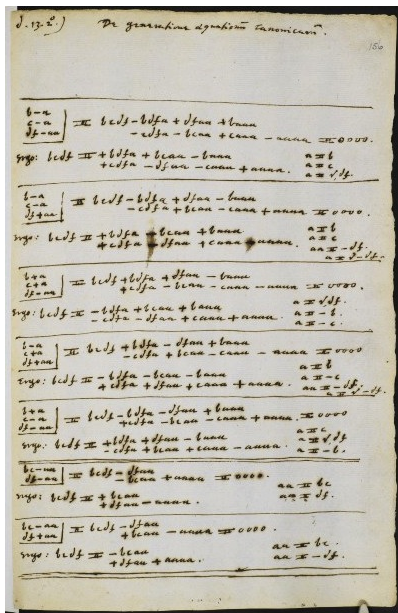 d.13.2°) De generatione æquationũ canonicarũ.
156
b-a
c-a
df-aa = bcdf - bdfa + dfaa + baaa
- cdfa - bcaa + caaa - aaaa = 0000.
Ergo: bcdf = + bdfa + bcaa - baaa a = b
+ cdfa - dfaa - caaa + aaaa. a = c
a = √df.
b-a
c-a
df+aa = bcdf - bdfa + dfaa - baaa
- cdfa + bcaa - caaa + aaaa = 0000.
Ergo: bcdf = + bdfa - bcaa + baaa a = b
+ cdfa - dfaa + caaa - aaaa. a = c
aa = -df.
a = √-df.
b+a
c+a
df-aa = bcdf + bdfa + dfaa - baaa
+ cdfa - bcaa - caaa - aaaa = 0000.
Ergo: bcdf = - bdfa + bcaa + baaa a = √df.
- cdfa - dfaa + caaa + aaaa. a = -b.
a = -c.
b-a
c+a
df+aa = bcdf + bdfa - dfaa + baaa
- cdfa + bcaa - caaa - aaaa = 0000
a = b
Ergo: bcdf = - bdfa - bcaa - baaa a = -c
+ cdfa + dfaa + caaa + aaaa. aa = -df.
a = √-df.
b+a
c-a
df-aa = bcdf - bdfa - dfaa + baaa
+ cdfa - bcaa - caaa + aaaa. = 0000
a = c
Ergo: bcdf = + bdfa + dfaa - baaa a = √df
- cdfa + bcaa + caaa - aaaa. a = -b.
bc-aa
df-aa = bcdf - dfaa
- bcaa + aaaa = 0000.
aa = bc
Ergo: bcdf = + bcaa aa = df.
+ dfaa - aaaa.
bc-aa
df+aa = bcdf - dfaa
+ bcaa - aaaa = 0000.
aa = bc.
Ergo: bcdf = - bcaa aa = -df.
+ dfaa + aaaa.